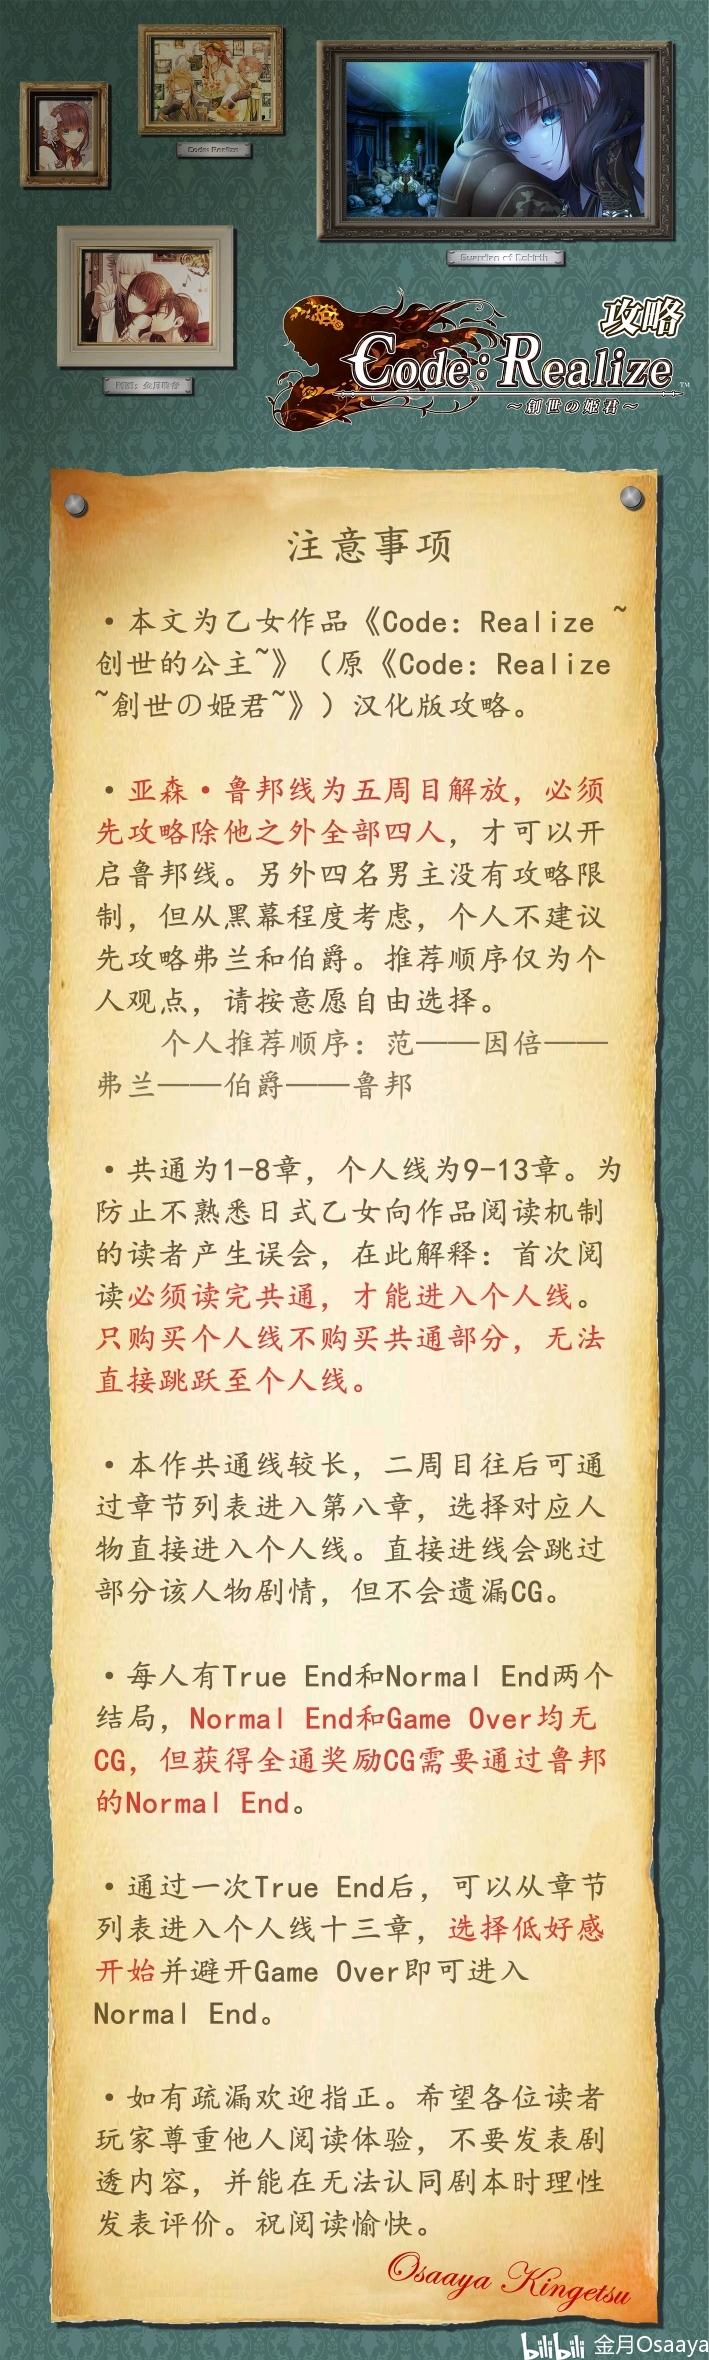 Code: Realize
Guardian of Rebirth
攻略
Code: Realize
TM
～創世の姫君～
注意事项
·本文为乙女作品《Code: Realize ~
创世的公主~》（原《Code: Realize
~創世の姫君~》）汉化版攻略。
·亚森·鲁邦线为五周目解放，必须
先攻略除他之外全部四人，才可以开
启鲁邦线。另外四名男主没有攻略限
制，但从黑幕程度考虑，个人不建议
先攻略弗兰和伯爵。推荐顺序仅为个
人观点，请按意愿自由选择。
个人推荐顺序：范——因倍——
弗兰——伯爵——鲁邦
·共通为1-8章，个人线为9-13章。为
防止不熟悉日式乙女向作品阅读机制
的读者产生误会，在此解释：首次阅
读必须读完共通，才能进入个人线。
只购买个人线不购买共通部分，无法
直接跳跃至个人线。
·本作共通线较长，二周目往后可通
过章节列表进入第八章，选择对应人
物直接进入个人线。直接进线会跳过
部分该人物剧情，但不会遗漏CG。
·每人有True End和Normal End两个
结局，Normal End和Game Over均无
CG，但获得全通奖励CG需要通过鲁邦
的Normal End。
·通过一次True End后，可以从章节
列表进入个人线十三章，选择低好感
开始并避开Game Over即可进入
Normal End。
·如有疏漏欢迎指正。希望各位读者
玩家尊重他人阅读体验，不要发表剧
透内容，并能在无法认同剧本时理性
发表评价。祝阅读愉快。
Osaaya Kingetsu
bilibili 金月Osaaya